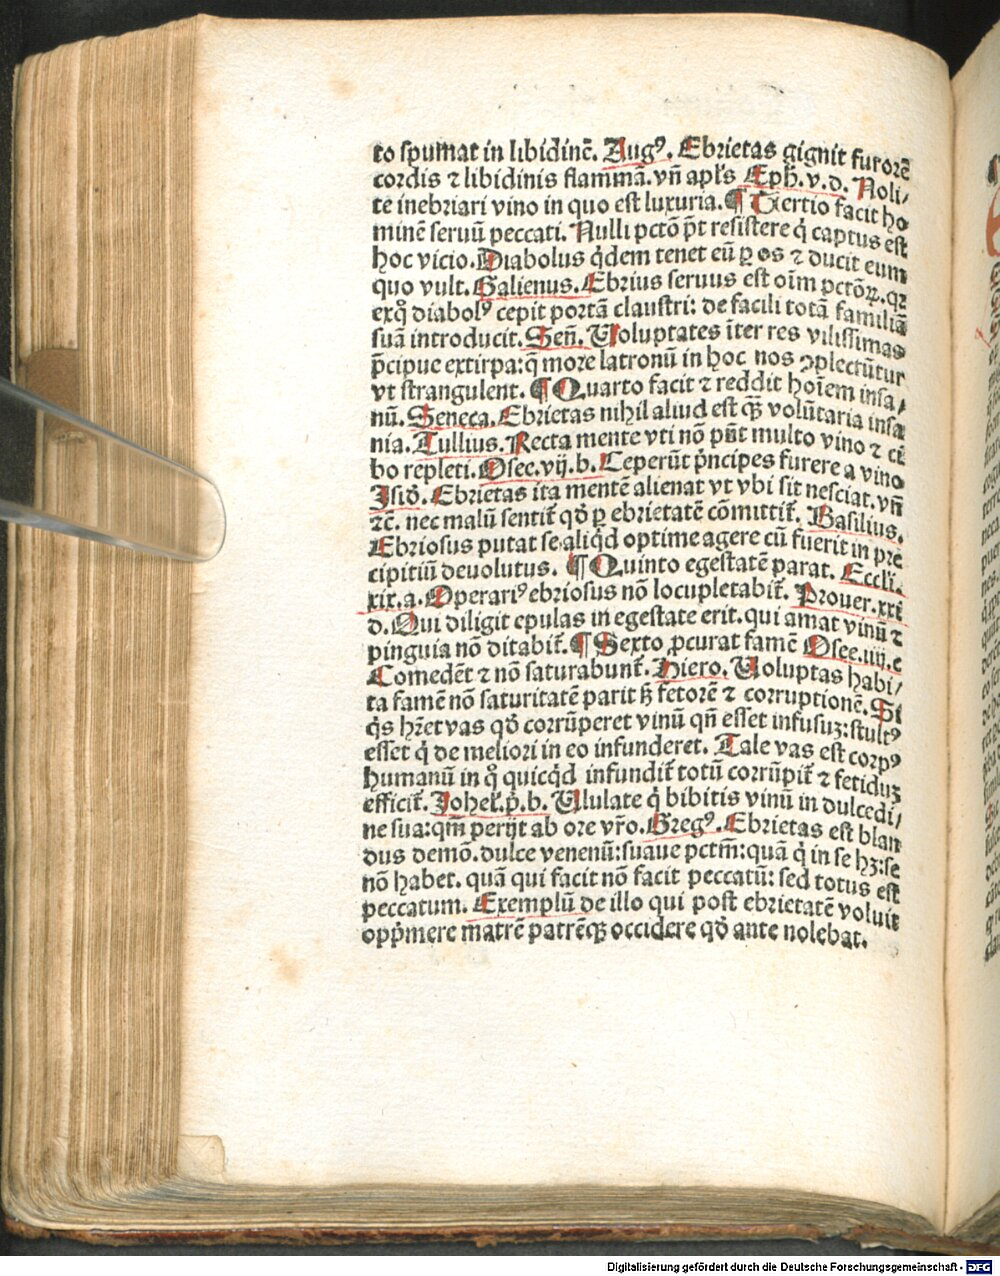 to spumat in libidinē. Augꝰ. Ebrietas gignit furorē
cordis ⁊ libidinis flammā. vn̄ apl's Eph̄. v. d. Noli/
te inebriari vino in quo est luxuria. ¶ Tertio facit ho
minē seruū peccati. Nulli pctō pt̄ resistere q̇ captus est
hoc vicio. Diabolus q̇dem tenet eū ꝑ os ⁊ ducit eum
quo vult. Galienus. Ebrius seruus est oīm pctōꝝ. qꝛ
exq̊ diabolꝰ cepit portā claustri: de facili totā familiā
suā introducit. Sen̄. Voluptates īter res vilissimas
p̄cipue extirpa: q̄ more latronū in hoc nos ꝯplectūtur
vt strangulent. ¶ Quarto facit ⁊ reddit hoīem insa/
nū. Seneca. Ebrietas nihil aliud est qꝫ̄ volūtaria insa
nia. Tullius. Recta mente vti nō pn̄t multo vino ⁊ ci
bo repleti. Osee. vij. b. Ceperūt p̄ncipes furere a vino
Isid. Ebrietas ita mentē alienat vt vbi sit nesciat. vn̄
⁊c̄. nec malū sentit̄ qd̄ ꝑ ebrietatē cōmittit̄. Basilius.
Ebriosus putat se aliq̇d optime agere cū fuerit in pre
cipitiū deuolutus. ¶ Quinto egestatē parat. Eccli.
xix. a. Operariꝰ ebriosus nō locupletabit̄. Prouer. xxi
d. Qui diligit epulas in egestate erit. qui amat vinū ⁊
pinguia nō ditabit̄. ¶ Sexto ꝓcurat famē Osee. iiij. c
Comedēt ⁊ nō saturabunt̄. Hiero. Voluptas habi/
ta famē nō saturitatē parit hꝫ̄ fetorē ⁊ corruptionē. Si
q̇s hr̄et vas qd̄ corrūperet vinū qn̄ esset infusuꝫ: stultꝰ
esset q̇ de meliori in eo infunderet. Tale vas est corpꝰ
humanū in q̊ quicq̇d infundit̄ totū corrūpit̄ ⁊ fetiduꝫ
efficit̄. Johel'. p̄. b. Ululate q̇ bibitis vinū in dulcedi/
ne sua: qm̄ perijt ab ore vr̄o. Gregꝰ. Ebrietas est blan
dus demō. dulce venenū: suaue pctm̄: quā q̇ in se hꝫ: se
nō habet. quā qui facit nō facit peccatū: sed totus est
peccatum. Exemplū de illo qui post ebrietatē voluit
opp̄mere matrē patrēqꝫ occidere qd̄ ante nolebat.
Digitalisierung gefördert durch die Deutsche Forschungsgemeinschaft - DFG